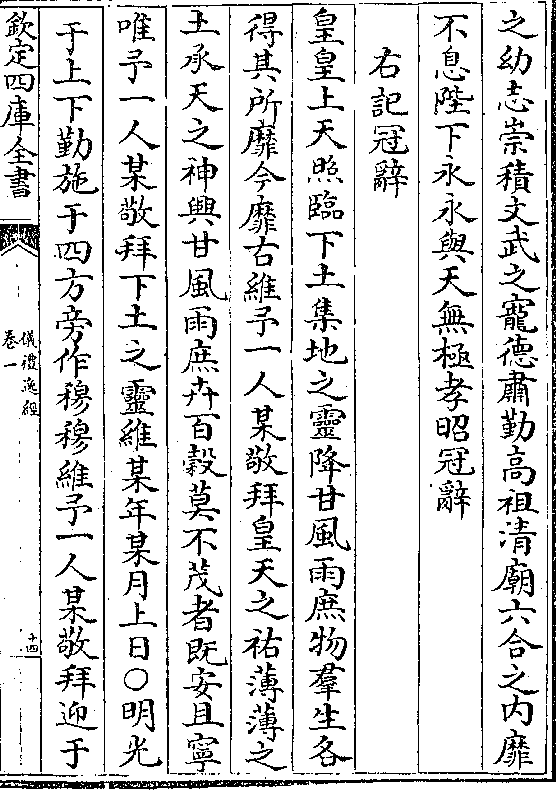 之幼志崇積文武之寵德肅勤高祖清廟六合之内靡
不息陛下永永與天無極孝昭冠辭
右記冠辭
皇皇上天照臨下土集地之靈降甘風雨庶物羣生各
得其所靡今靡古維予一人某敬拜皇天之祐薄薄之
土承天之神興甘風雨庶卉百穀莫不茂者既安且寧
唯予一人某敬拜下土之靈維某年某月上日○明光
于上下勤施于四方旁作穆穆維予一人某敬拜迎于
欽定四庫全書
儀禮逸經
卷一
十四